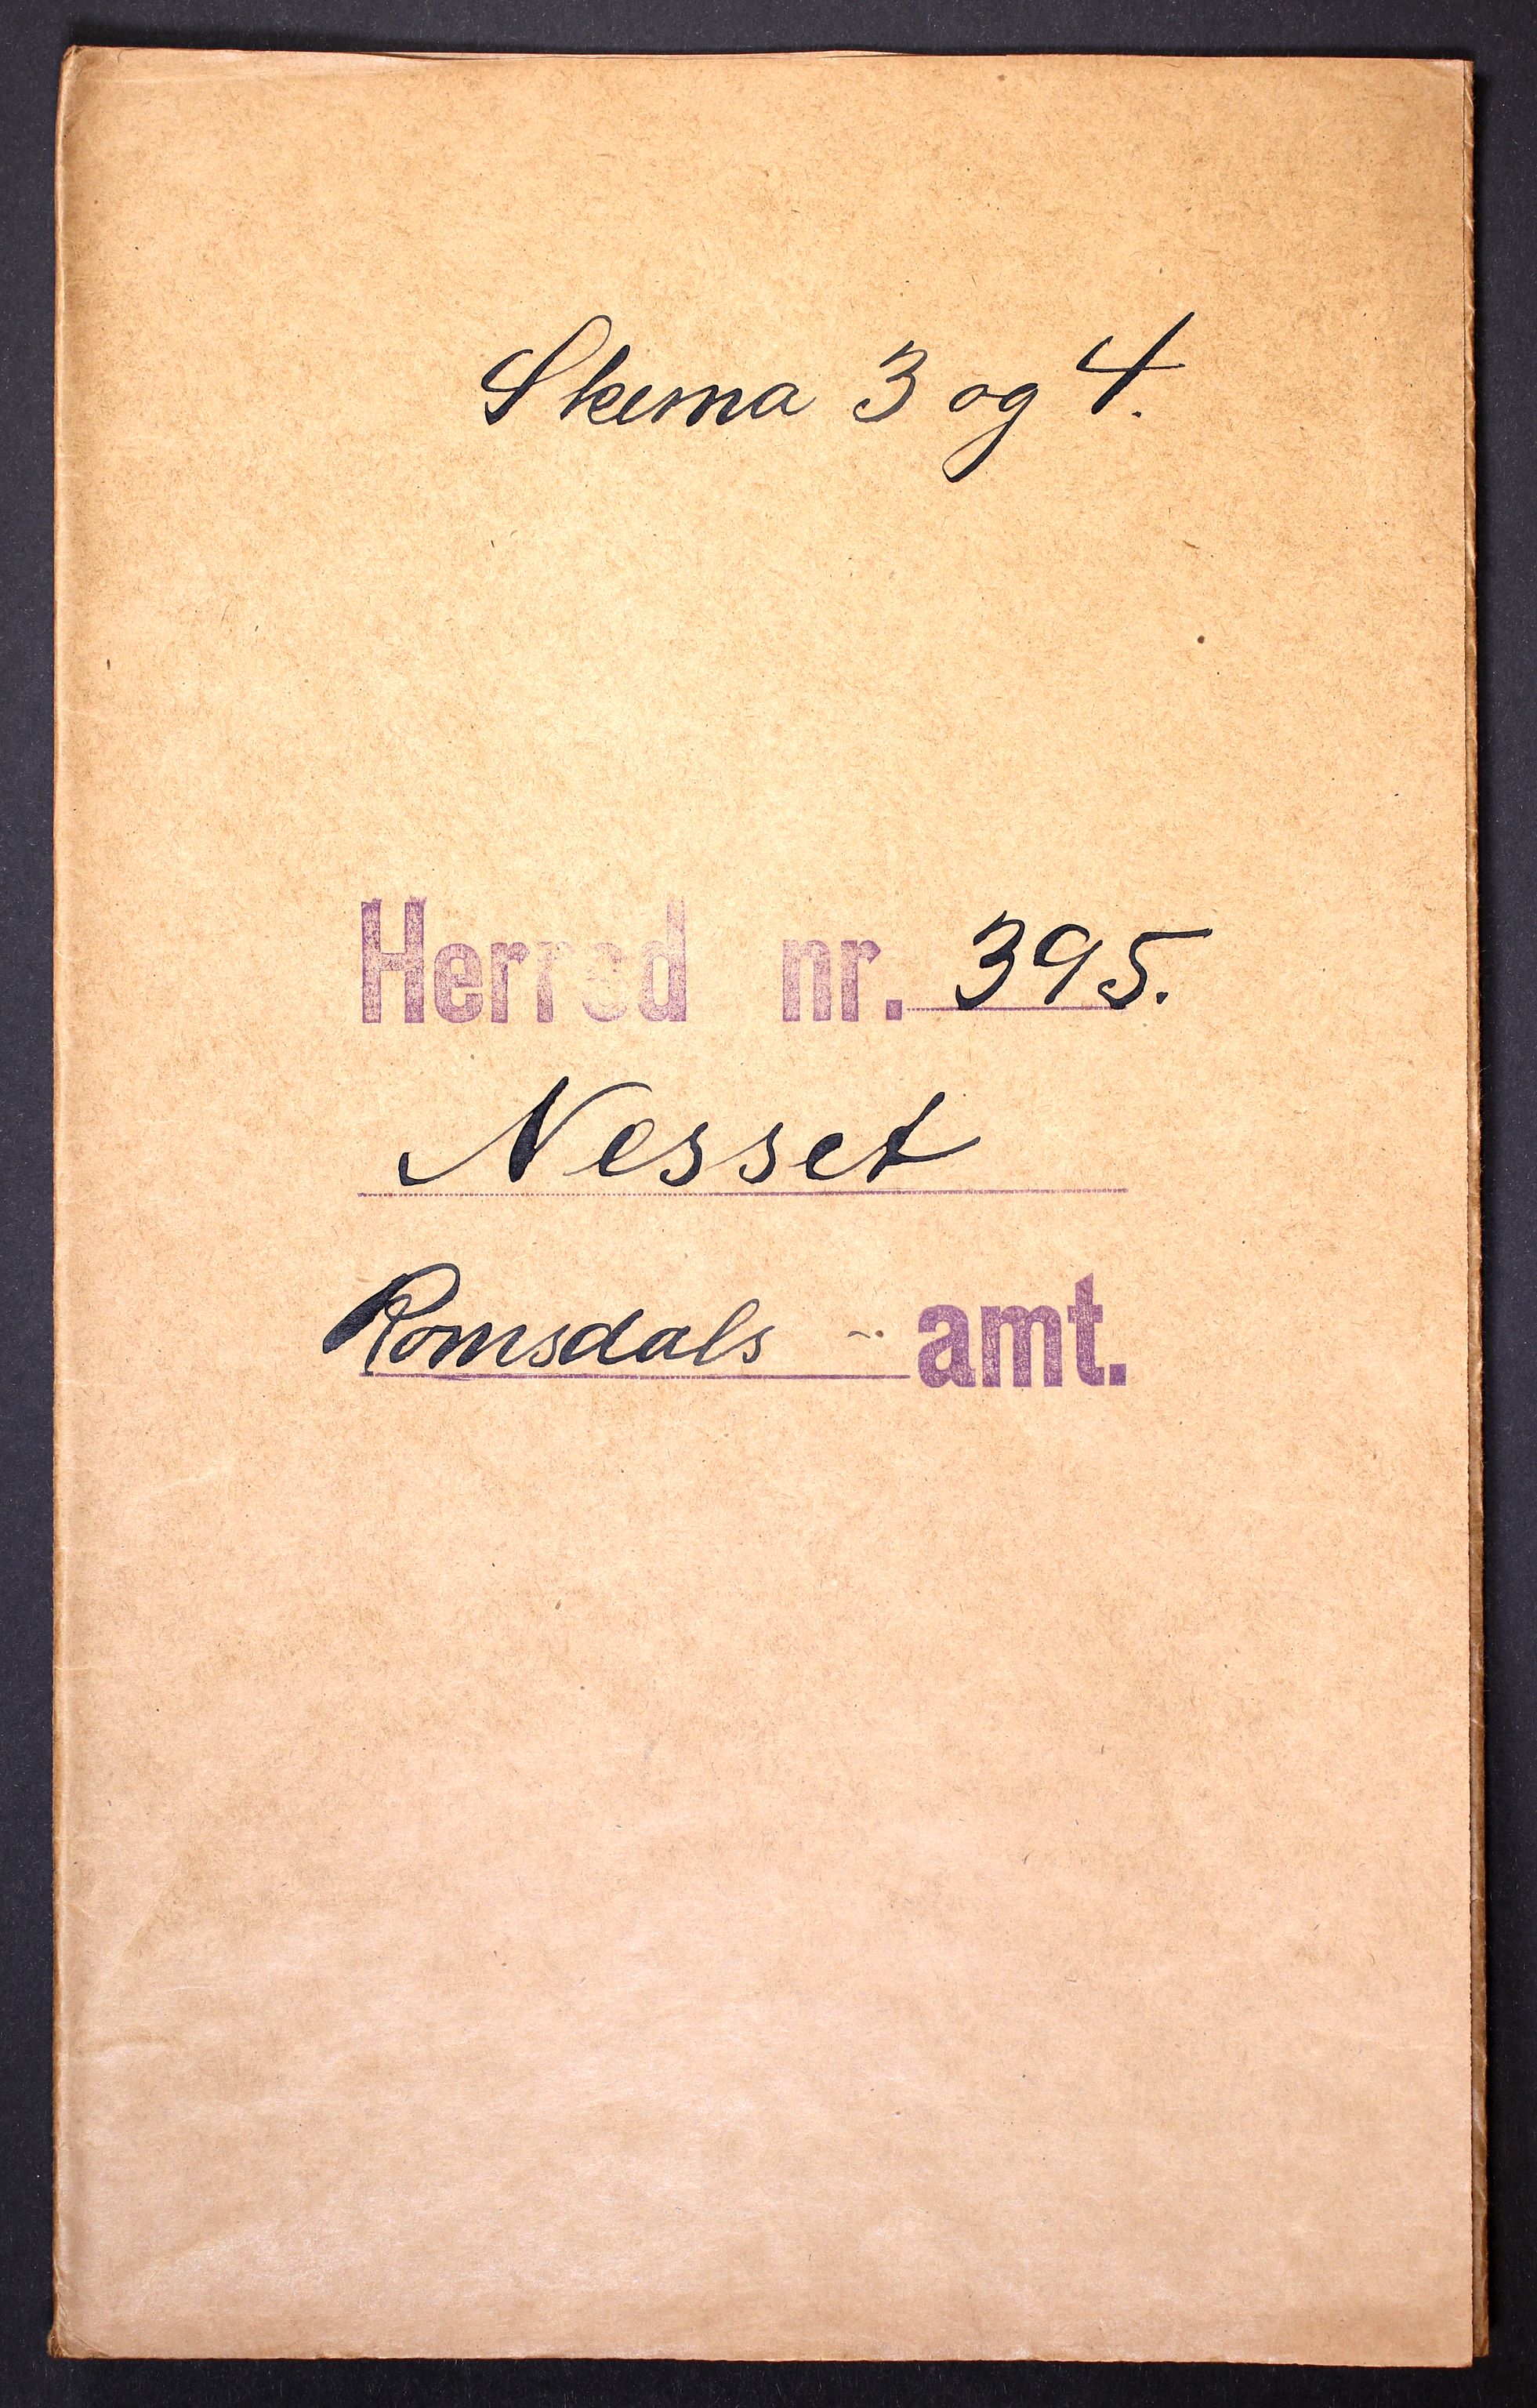 Skema 3 og 4.
Herred nr. 395.
Nesset
Romsdals - amt.